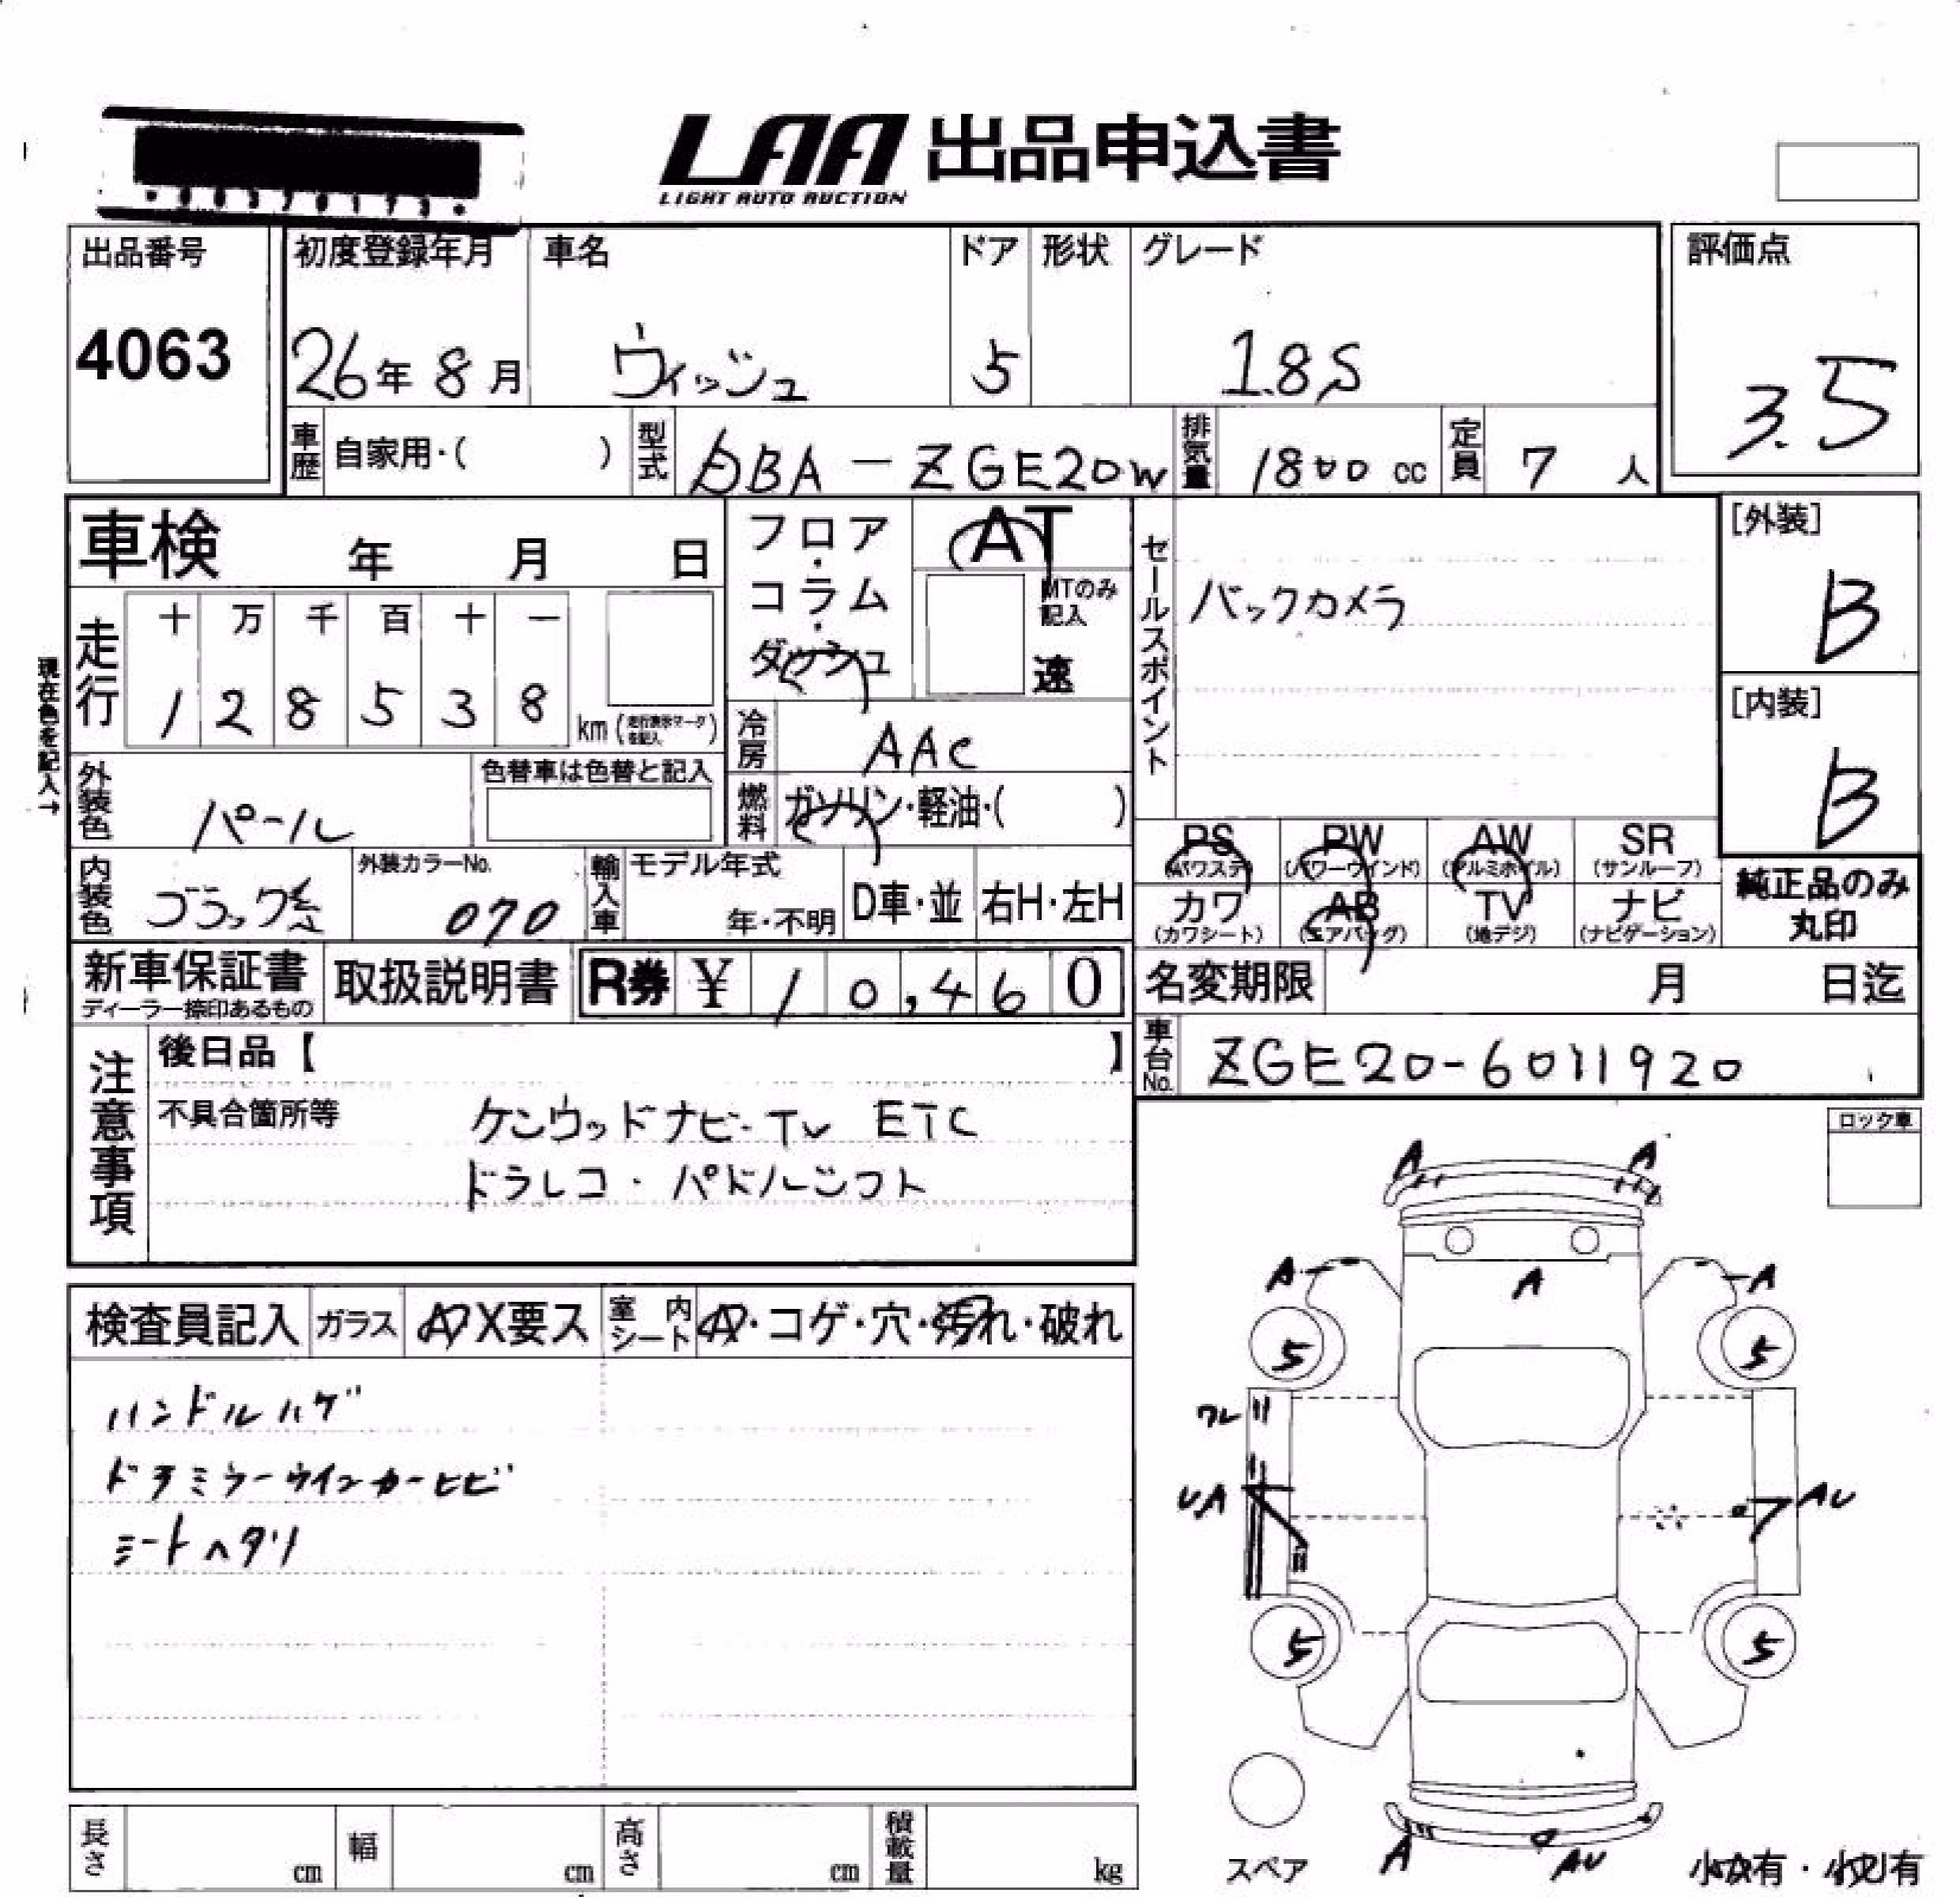 LAA 出品申込書
LIGHT AUTO AUCTION
出品番号
4063
初度登録年月
26年 8月
車名
ウィッシュ
ドア
5
形状
グレード
1.8S
評価点
3.5
車歴
自家用・( )
型式
DBA-ZGE20W
排気量
1800 cc
定員
7 人
車検 年 月 日
フロア・コラム・ダッシュ
AT
MTのみ記入
速
セールスポイント
バックカメラ
[外装]
B
[内装]
B
現在色を記入→
走行
十 万 千 百 十 一
1 2 8 5 3 8
km (走行表示マークを記入)
冷房
AAC
外装色
パール
色替車は色替と記入
燃料
ガソリン・軽油・( )
PS (パワステ)
PW (パワーウインド)
AW (アルミホイル)
SR (サンルーフ)
カワ (カワシート)
AB (エアバッグ)
TV (地デジ)
ナビ (ナビゲーション)
純正品のみ丸印
内装色
ブラック系
外装カラーNo.
070
輸入車
モデル年式
年・不明
D車・並
右H・左H
新車保証書
ディーラー捺印あるもの
取扱説明書
R券 ¥ 10,460
名変期限 月 日迄
車台No.
ZGE20-6011920
注意事項
後日品【 】
不具合箇所等
ケンウッドナビ・TV ETC
ドラレコ・パドルシフト
ロック車
検査員記入
ガラス
A X要ス
室内シート
A・コゲ・穴・汚れ・破れ
ハンドルハゲ
ドアミラーウインカーヒビ
シートヘタリ
A A
A A A
5 5
ワレ
UA AU
5 5
A AU
スペア
小A有・小U有
長さ cm
幅 cm
高さ cm
積載量 kg